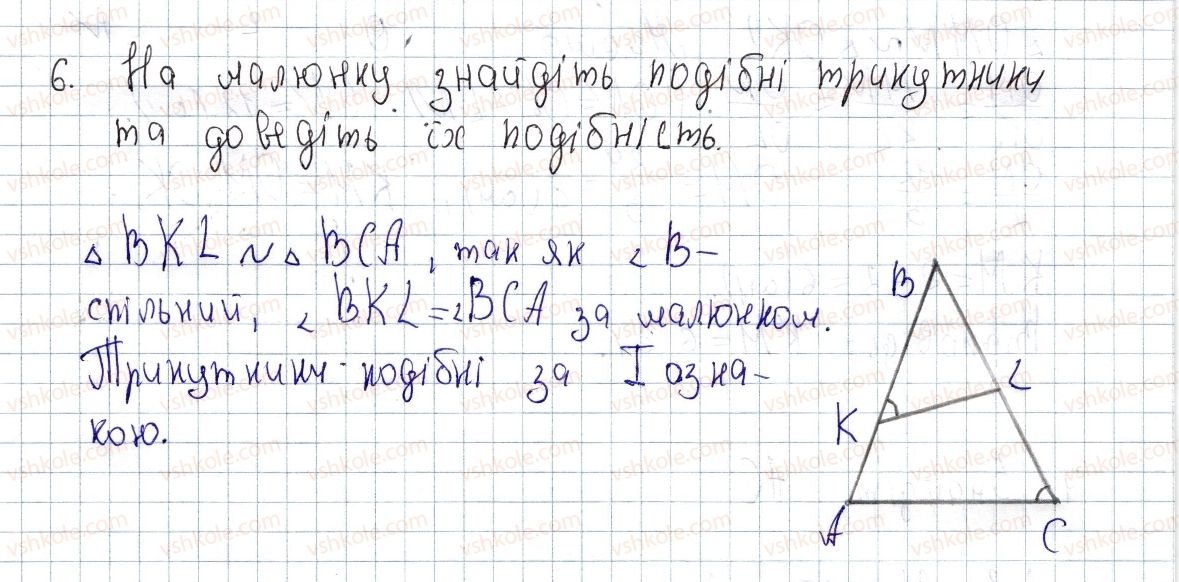 6. На малюнку знайдіть подібні трикутники
та доведіть їх подібність.
△ BKL ~ △ BCA, так як ∠ B –
спільний, ∠ BKL = ∠ BCA за малюнком.
Трикутники подібні за I озна-
кою.
B
L
K
A
C
vshkole.com